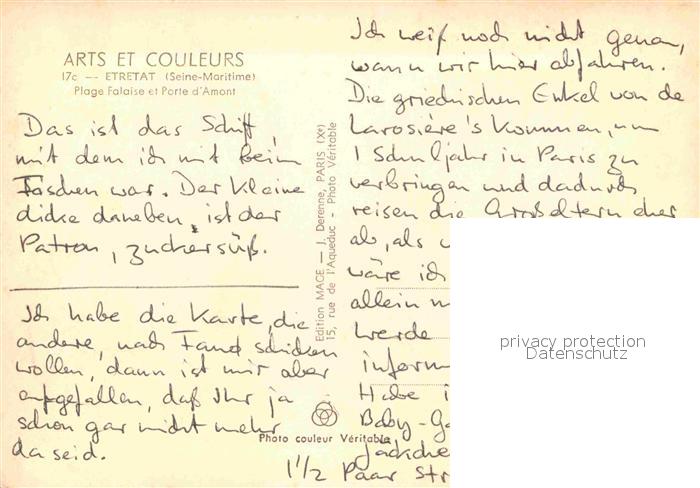 ARTS ET COULEURS
17c — ETRETAT (Seine-Maritime)
Plage Falaise et Porte d'Amont
Das ist das Schiff,
mit dem ich mit beim
Fischen war. Der kleine
dicke daneben, ist der
Patron, zuckersüß.
Ich habe die Karte, die
andere, nach Fand schicken
wollen, dann ist mir aber
aufgefallen, daß Ihr ja
schon gar nicht mehr
da seid.
Edition MAGE — J. Derenne, PARIS (Xe)
15, rue de l'Aqueduc - Photo Véritable
Photo couleur Véritable
Ich weiß noch nicht genau,
wann wir hier abfahren.
Die griechischen Enkel von de
Larosière's kommen, um
1 Schuljahr in Paris zu
verbringen und dadurch
reisen die Großeltern eher
ab, als
wäre ich
allein
werde
inform
Habe i
Baby-Ga
Jäckche
1 1/2 Paar Str
privacy protection
Datenschutz